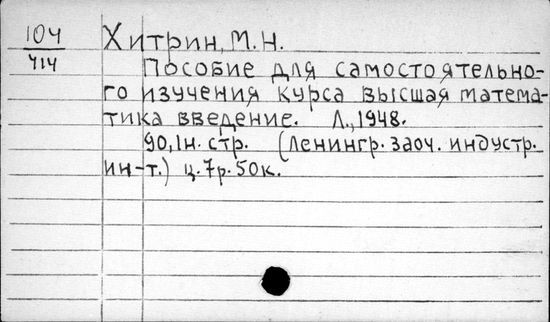 104
414
Хитрин, М.Н.
Пособие для самостоятельно-
го изучения курса высшая матема-
тика введение. Л., 1948.
90,1н. стр. (Ленингр. заоч. индустр.
ин-т.) ц. 7р. 50к.